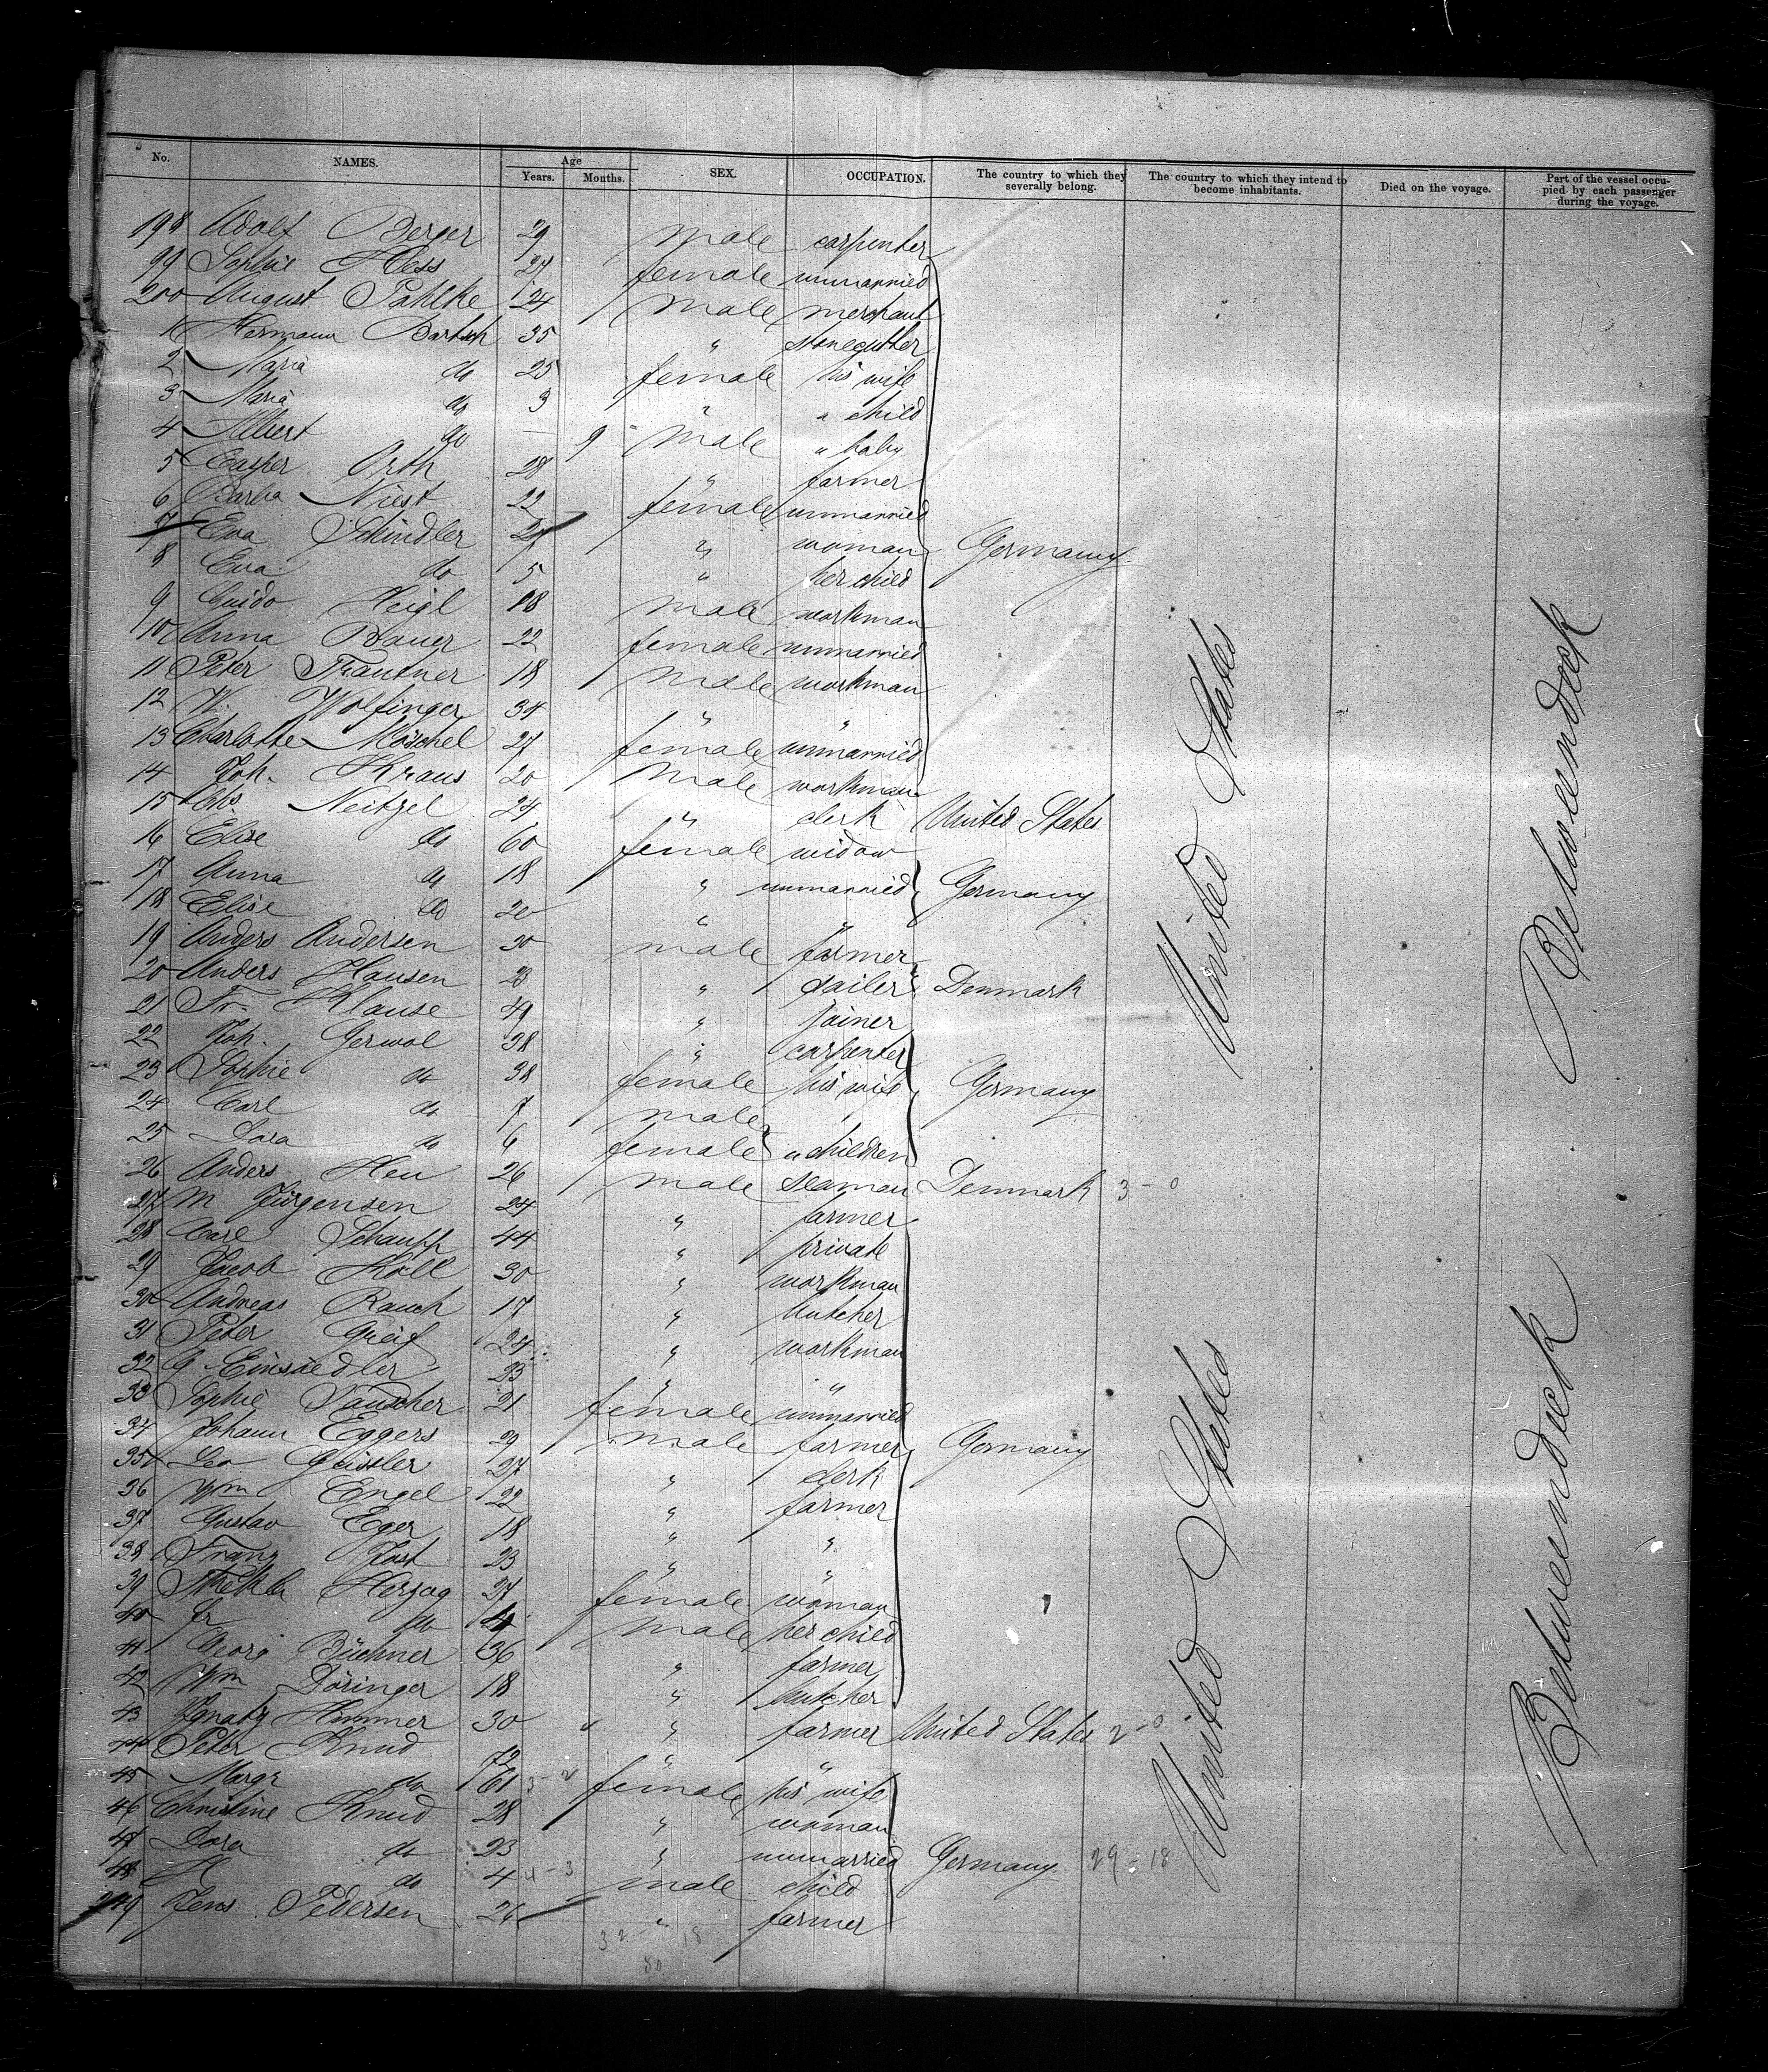 No. NAMES. Age Years. Months. SEX. OCCUPATION. The country to which they severally belong. The country to which they intend to become inhabitants. Died on the voyage. Part of the vessel occupied by each passenger during the voyage.
198 Adolf Berger 29 male carpenter
99 Sophie Hess 27 female unmarried
200 August Pahlke 24 male merchant
1 Hermann Bartsch 35 " stonecutter
2 Maria do 25 female his wife
3 Maria do 3 " " child
4 Albert do — 9 male " baby
5 Casper Orth 28 " farmer
6 Barba Niest 22 female unmarried
7 Eva Schindler 24 " woman Germany
8 Eva do 5 " her child
9 Guido Heigl 18 male workman
10 Anna Bauer 22 female unmarried
11 Peter Trautner 18 male workman
12 W. Wolfinger 34 " "
13 Charlotte Möschel 27 female unmarried
14 Joh. Kraus 20 male workman
15 Chs. Neitzel 24 " clerk United States
16 Elise do 60 female widow
17 Anna do 18 " unmarried Germany
18 Elise do 20 " "
19 Anders Andersen 30 male farmer
20 Anders Hansen 23 " sailer Denmark
21 Fr. Klause 49 " joiner
22 Joh. Gerwol 38 " carpenter
23 Sophie do 38 female his wife Germany
24 Carl do 7 male
25 Dora do 6 female " children
26 Anders Heu 26 male seaman Denmark 3-0
27 M Jürgensen 24 " farmer
28 Carl Schaupp 44 " private
29 Jacob Koll 30 " workman
30 Andreas Rauch 17 " butcher
31 Peter Greif 24 " workman
32 G Einsiedler 23 " "
33 Sophie Tauscher 21 female unmarried
34 Johann Eggers 29 male farmer Germany
35 Leo Geissler 27 " clerk
36 Wm Engel 22 " farmer
37 Gustav Eger 18 " "
38 Franz Jost 23 " "
39 Thekla Herzog 27 female woman
40 Fr do 4 male her child
41 Georg Büchner 36 " farmer
42 Wm Döringer 18 " butcher
43 Ignatz Himmer 30 " " farmer United States 2-0
44 Peter Knud 72 "
45 Margr do 61 3-2 female his wife
46 Christine Knud 28 " woman
47 Dora do 23 " unmarried Germany 29-18
48 H do 4 4-3 male child
249 Jens Pedersen 26 " farmer
32-18
80
United States
United States
Betweendeck
Betweendeck